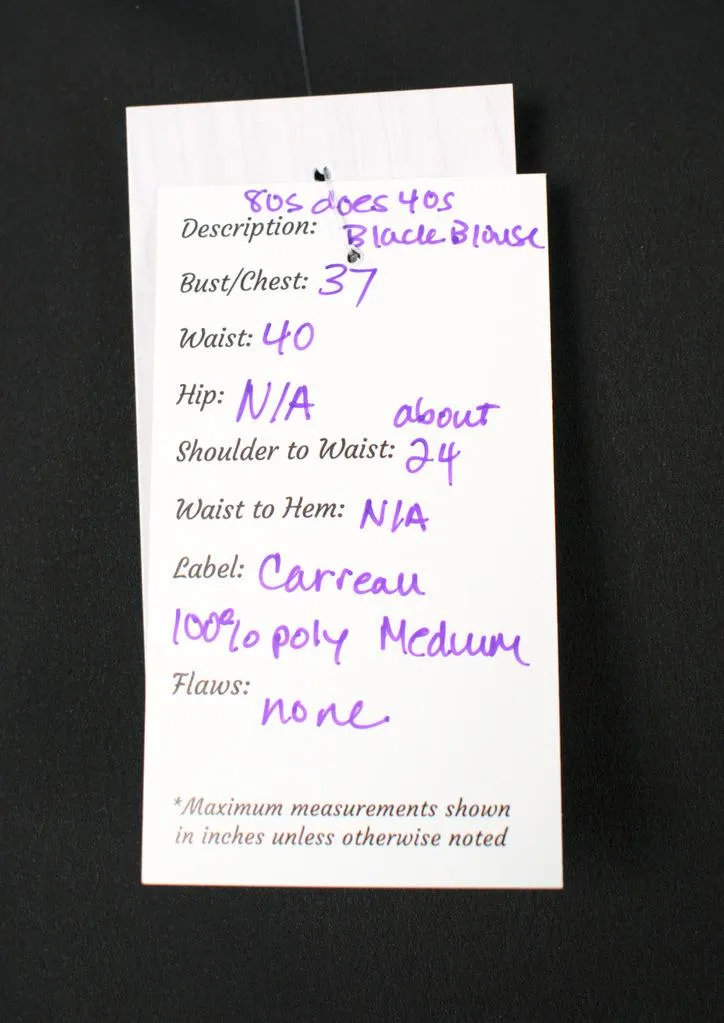 80s does 40s
Description: Black Blouse
Bust/Chest: 37
Waist: 40
Hip: N/A
about
Shoulder to Waist: 24
Waist to Hem: N/A
Label: Carreau
100% poly Medium
Flaws:
none.
*Maximum measurements shown
in inches unless otherwise noted